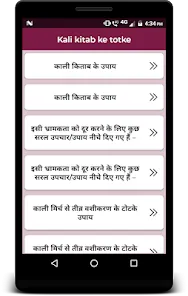 4G 4:34 PM
Kali kitab ke totke
काली किताब के उपाय
काली किताब के उपाय
इसी भ्रामकता को दूर करने के लिए कुछ
सरल उपचार/उपाय नीचे दिए गए हैं -
इसी भ्रामकता को दूर करने के लिए कुछ
सरल उपचार/उपाय नीचे दिए गए हैं -
काली मिर्च से तीव्र वशीकरण के टोटके
उपाय
काली मिर्च से तीव्र वशीकरण के टोटके